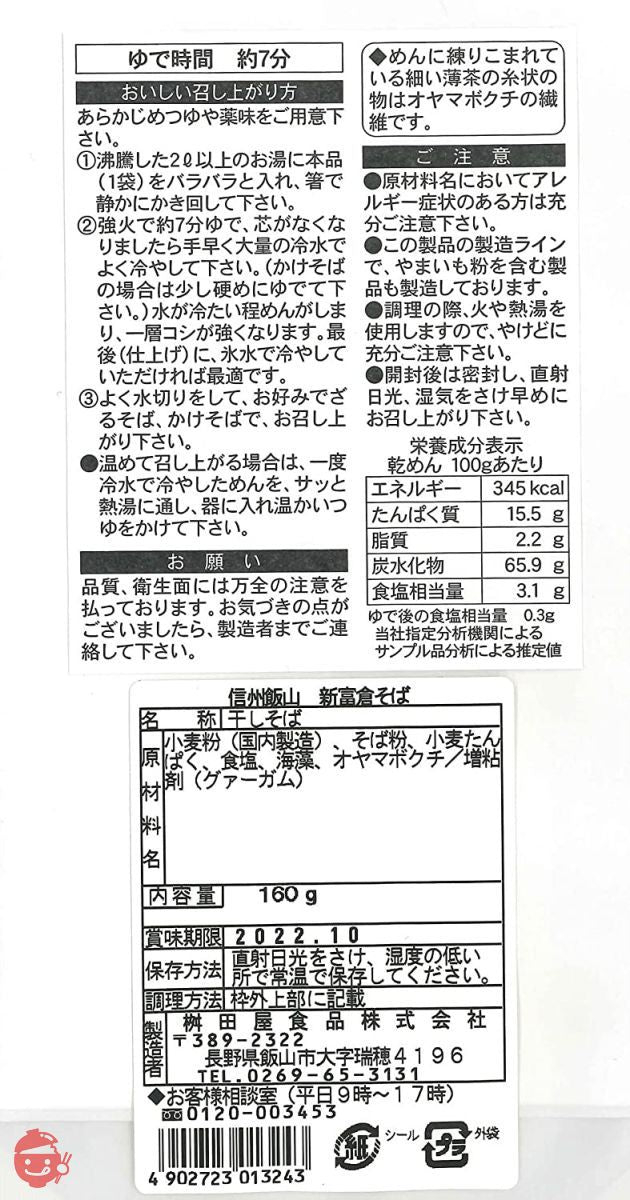 ゆで時間 約7分
おいしい召し上がり方
あらかじめつゆや薬味をご用意下
さい。
①沸騰した2ℓ以上のお湯に本品
(1袋)をバラバラと入れ、箸で
静かにかき回して下さい。
②強火で約7分ゆで、芯がなくな
りましたら手早く大量の冷水で
よく冷やして下さい。(かけそば
の場合は少し硬めにゆでて下
さい。)水が冷たい程めんがしま
り、一層コシが強くなります。最
後(仕上げ)に、氷水で冷やして
いただければ最適です。
③よく水切りをして、お好みでざ
るそば、かけそばで、お召し上
がり下さい。
●温めて召し上がる場合は、一度
冷水で冷やしためんを、サッと
熱湯に通し、器に入れ温かいつ
ゆをかけて下さい。
お願い
品質、衛生面には万全の注意を
払っております。お気づきの点が
ございましたら、製造者までご連
絡して下さい。
◆めんに練りこまれて
いる細い薄茶の糸状の
物はオヤマボクチの繊
維です。
ご注意
●原材料名においてアレ
ルギー症状のある方は充
分ご注意下さい。
●この製品の製造ライン
で、やまいも粉を含む製
品も製造しております。
●調理の際、火や熱湯を
使用しますので、やけどに
充分ご注意下さい。
●開封後は密封し、直射
日光、湿気をさけ早めに
お召し上がり下さい。
栄養成分表示
乾めん 100gあたり
エネルギー 345kcal
たんぱく質 15.5 g
脂質 2.2 g
炭水化物 65.9 g
食塩相当量 3.1 g
ゆで後の食塩相当量 0.3g
当社指定分析機関による
サンプル品分析による推定値
信州飯山 新富倉そば
名称 干しそば
原材料名 小麦粉(国内製造)、そば粉、小麦たん
ぱく、食塩、海藻、オヤマボクチ/増粘
剤(グァーガム)
内容量 160g
賞味期限 2022.10
保存方法 直射日光をさけ、湿度の低い
所で常温で保存してください。
調理方法 枠外上部に記載
製造者 桝田屋食品株式会社
〒389-2322
長野県飯山市大字瑞穂4196
TEL.0269-65-3131
◆お客様相談室(平日9時~17時)
0120-003453
4 902723 013243
紙 シール プラ 外袋